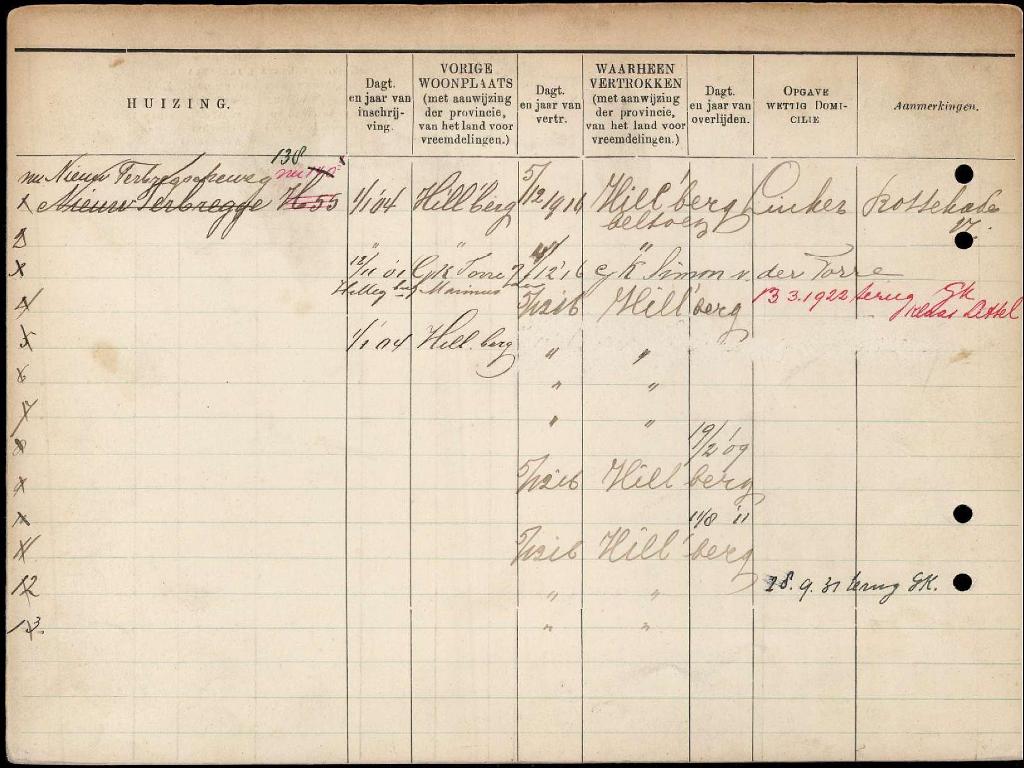 HUIZING.
Dagt. en jaar van inschrijving.
VORIGE WOONPLAATS (met aanwijzing der provincie, van het land voor vreemdelingen.)
Dagt. en jaar van vertr.
WAARHEEN VERTROKKEN (met aanwijzing der provincie, van het land voor vreemdelingen.)
Dagt. en jaar van overlijden.
OPGAVE WETTIG DOMICILIE
Aanmerkingen.
138
nu Nieuw Terbregscheweg
1 Nieuw Terbregge 55 1/1 04 Hill'berg 5/12 1916 Hill'berg Linker Rottekade
17.
2 " " "
3 12/11 01 GK Torre /12 '16 GK Simon v. der Torre
Marinus
4 5/12 16 Hill'berg 13 3.1922 terug GK
5 1/1 04 Hill.berg " "
6 " "
7 " "
8 19/2 '09
9 5/12 16 Hill'berg
11/8 '11
11 5/12 16 Hill'berg
12 " " 28.9.31 terug GK.
13. " "